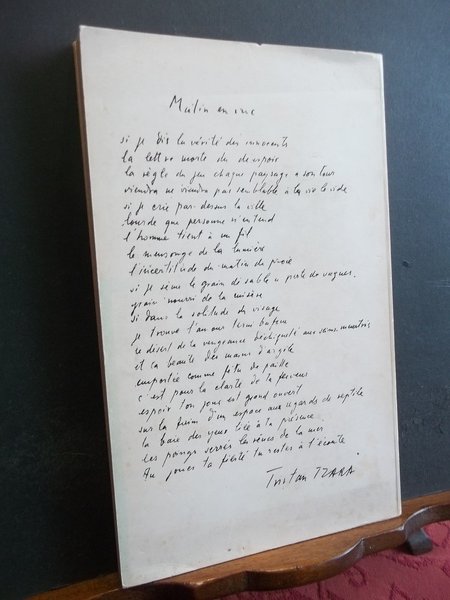 Matin en vue
si je dis la vérité des innocents
la lettre morte du
la règle du jeu chaque paysage a son tour
viendra ne viendra pas semblable à la vie le vide
si je crie par-dessus la ville
lourde que personne n'entend
l'homme tient à un fil
le mensonge de la lumière
l'incertitude du matin de
si je sème le grain de sable a perte de vagues
grain nourri de la misère
si dans la solitude du visage
je trouve l'amour
ce désert de la vengeance déchiqueté aux
et sa beauté des mains d'argile
emportée comme fétu de paille
c'est pour la clarté de la
espoir ton jeu est grand ouvert
sur la faim d'un espace aux regards de reptile
la baie des yeux liée à la présence
les poings serrés les rênes de la mer
tu joues ta fierté tu restes à l'écoute
Tristan TZARA